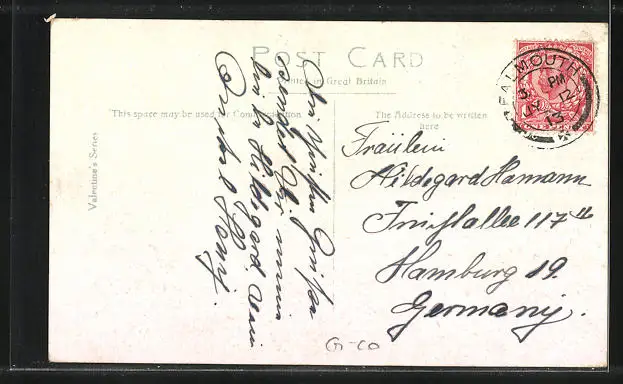 POST CARD
Printed in Great Britain
This space may be used for Communication
The Address to be written
here
Valentine's Series
Die
sendet Dir meine
liebe Hildegard, Dein
Onkel
Fräulein
Hildegard Hamann
117
Hamburg 19.
Germany.
FALMOUTH
PM
12
13
G-CO